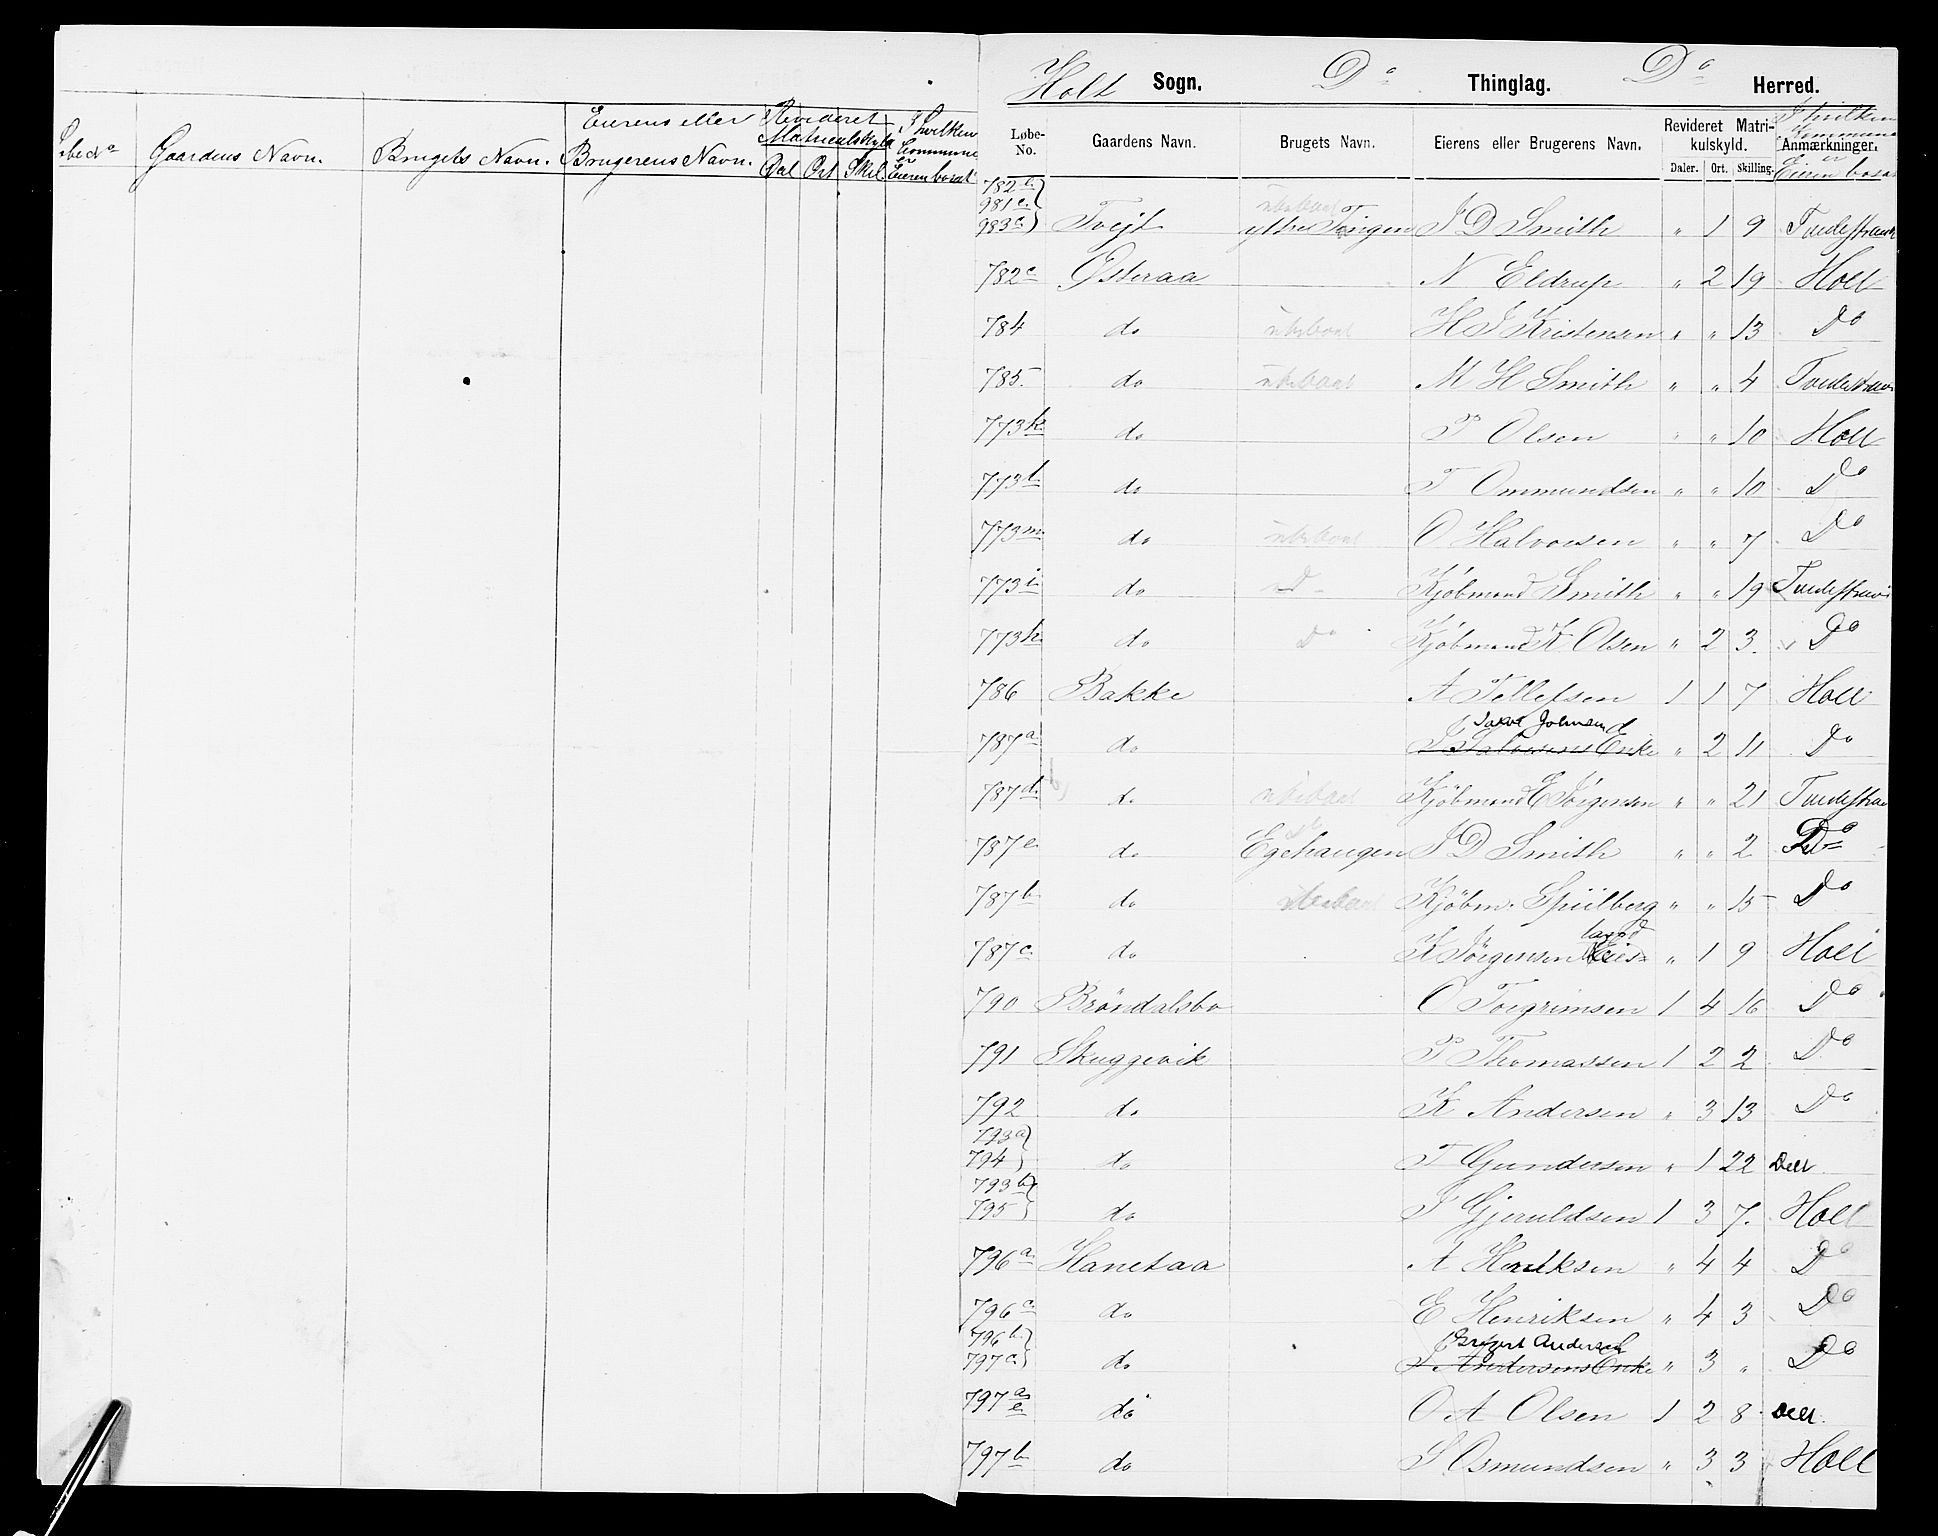 Holt Sogn. Do Thinglag. Do Herred.
Løbe No Gaardens Navn. Brugets Navn. Eierens eller Brugerens Navn. Revideret Matriculskyld Dal Ort Skil. I hvilken Commune er Eieren bosat
Løbe-No. Gaardens Navn. Brugets Navn. Eierens eller Brugerens Navn. Revideret Matrikulskyld. Daler. Ort. Skilling. Anmærkninger. I hvilken Kommune er Eieren bosat
782b
981c
983c Tvejt ubeboet ytre Tingen J D Smith " 1 9 Tvedestrand
782c Østeraa N Eldrup " 2 19 Holt
784 do ubeboet H J Kristensen " " 13 Do
785. do ubeboet M H Smith " " 4 Tvedestrand
773k do P Olsen " " 10 Holt
773l do T Ommundsen " " 10 Do
773m do ubeboet O Halvorsen " " 7 Do
773i do D Kjøbmand Smith " " 19 Tvedestrand
773h do Do Kjøbmand K Olsen " 2 3. Do
786 Bakke A Tellefsen 1 1 7 Holt
Jakob Johnsen
787a do J Salvesens Enke " 2 11 Do
787d do ubeboet Kjøbmand E Jörgensen " " 21 Tvedestrand
787e do Egehaugen J D Smith " " 2 Do
787b do ubeboet Kjøbm. Spiilberg " " 15 Do
787c do K Jörgensen " 1 9 Holt
790 Bröndalsbo O Torgrimsen 1 4 16 Do
791 Skuggevik P Thomassen 1 2 2 Do
792 do K Andersen " 3 13 Do
793a
794 do T Gundersen " 1 22 Delt
793b
795 do J Gjeruldsen 1 3 7. Holt
796a Hanetaa A Henriksen " 4 4 Do
796c do E Henriksen " 4 3 Do
796b Brigert Andersen
797c do J Andersens Enke " 3 " Do
797a e do O A Olsen 1 2 8 Delt
797b do S Osmundsen " 3 3 Holt